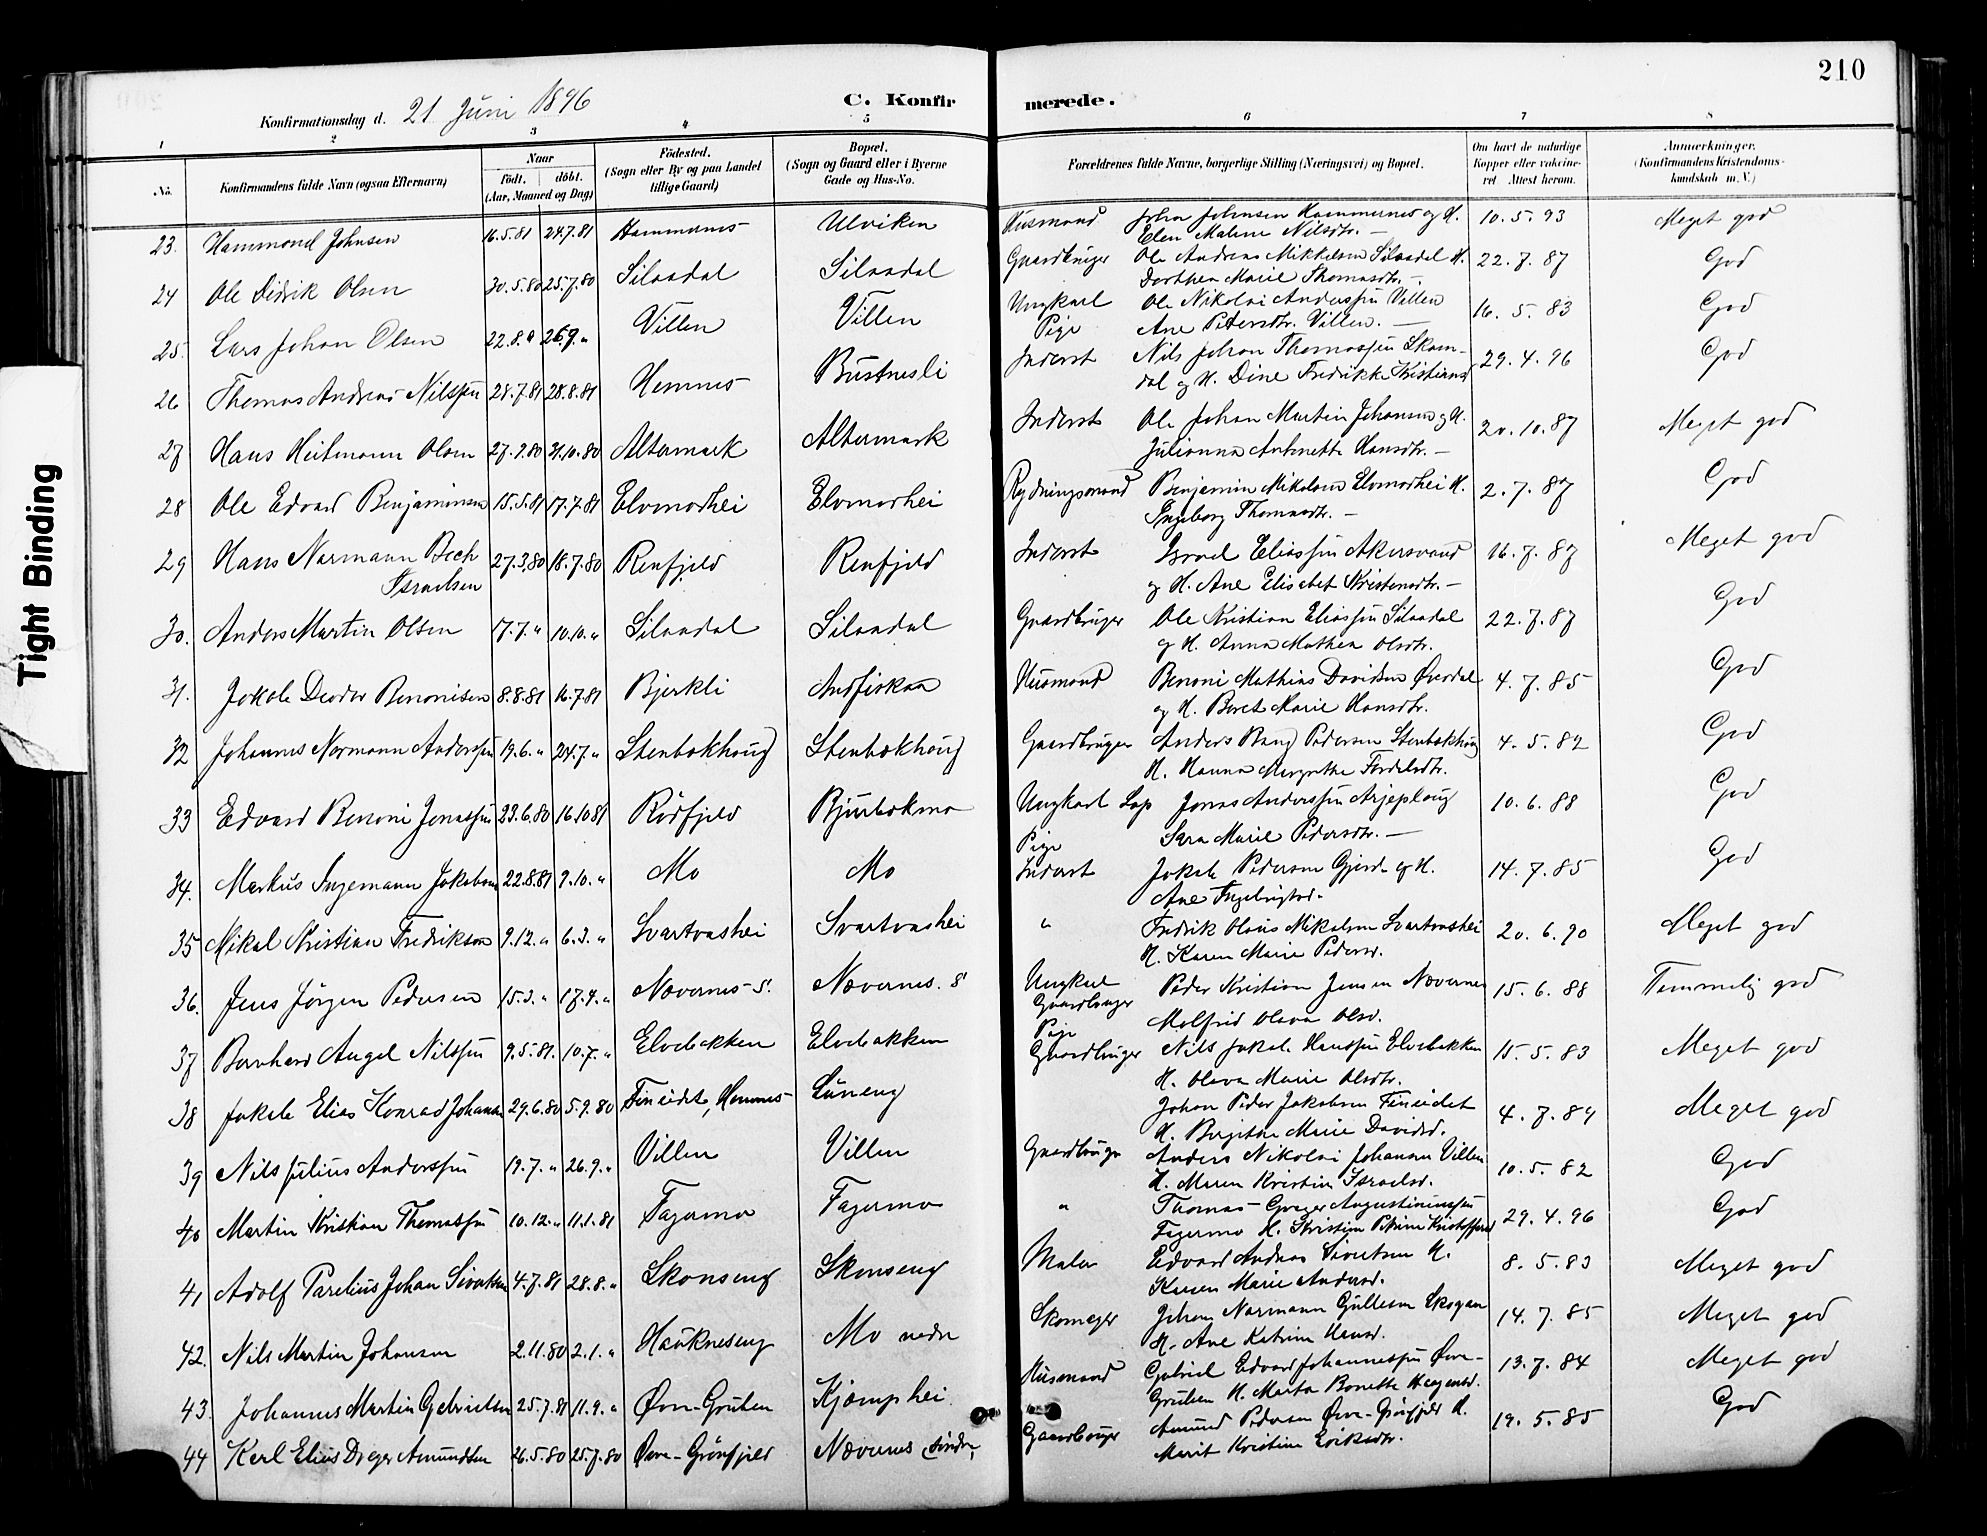 210
Konfirmationsdag d. 21 Juni 1896
C. Konfirmerede.
1 2 3 4 5 6 7 8
No. Konfirmandens fulde Navn (ogsaa Efternavn) Naar Födt, döbt. (Aar, Maaned og Dag) Födested. (Sogn eller By og paa Landet tillige Gaard) Bopæl. (Sogn og Gaard eller i Byerne Gade og Hus-No. Forældrenes fulde Navne, borgerlige Stilling (Næringsvei) og Bopæl. Om havt de naturlige Kopper eller vakcineret. Attest herom. Anmerkninger. (Konfirmandens Kristendomskundskab m. V.)
23. Hammond Johnsen 16.5.81 24.7.81 Hammernes Ulviken Husmand John Johnsen Hammernes og H. 10.5.93 Meget god
Elen Malene Nilsdtr. —
24 Ole Didrik Olsen 30.5.80 25.7.80 Silaadal Silaadal Gaardbruger Ole Andreas Mikkelsen Silaadal H. 22.7.87 God
Dorthea Marie Thomasdtr. —
25. Lars Johan Olsen 22.8." 26.9." Villen Villen Ungkarl Ole Nikolai Anderssen Villen 16.5.83 God
Pige Ane Petersdtr. Villen. —
26 Thomas Andreas Nilssen 28.7.81 28.8.81 Hemnes Bustnesli Inderst Nils Johan Thomassen Skamdal og H. Dine Fredrikke Kristiansd 29.4.96 God
27 Hans Heitmann Olsen 27.9.80 31.10.80 Altermark Altermark Inderst Ole Johan Martin Johansen og H. 20.10.87 Meget god
Julianna Antonette Hansdtr. —
28 Ole Edvard Benjaminsen 15.5.81 17.7.81 Elvmodhei Elvmodhei Rydningsmand Benjamin Mikalsen Elvmodhei H. 2.7.87 God
Ingeborg Thomasdtr. —
29 Hans Normann Bech 27.3.80 18.7.80 Renfjeld Renfjeld Inderst Israel Eliassen Akersvand 16.7.87 Meget god
Israelsen og H. Ane Elisabet Kristensdtr. —
30. Anders Martin Olsen 17.7." 10.10." Silaadal Silaadal Gaardbruger Ole Kristian Eliassen Silaadal 22.7.87 God
og H. Anna Mathea Olsdtr.
31. Jakob Deodor Benonisen 8.8.81 16.7.81 Bjerkli Andfiskaa Husmand Benoni Mathias Davidsen Øverdal 4.7.85 God
og H. Beret Marie Hansdtr.
32 Johannes Normann Anderssen 19.6." 24.7." Stenbokhoug Stenbokhoug Gaardbruger Anders Bang Pedersen Stenbokhoug 4.5.82 God
H. Hanna Margrethe
33 Edvard Benoni Jonassen 23.6.80 16.10.81 Rödfjeld Bjurbokmo Ungkarl Lap Jonas Anderssen Arjeploug 10.6.88 God
Pige Sara Marie Pedersdtr. —
34. Markus Ingemann Jakobsen 22.8.81 9.10." Mo Mo Inderst Jakob Pedersen og H. 14.7.85 God
Ane Ingebrigtsd.
35 Mikal Kristian Fredriksen 9.12." 6.3." Svartvashei Svartvashei " Fredrik Olaus Mikalsen Svartvashei 20.6.90 Meget god
H. Karen Marie Pedersd.
36. Jens Jörgen Pedersen 15.3." 17.4." Nævernes-S. Nævernes. S Ungkarl Gaardbruger Peder Kristian Jensen Nævernes 15.6.88 Temmelig god
Pige Malfrid Olava Olsd.
37 Bernhard Angel Nilssen 9.5.81. 10.7." Elvebakken Elvebakken Gaardbruger Nils Jakob Hanssen Elvebakken 15.5.83 Meget god
H. Olava Marie Olsdtr.
38 Jakob Elias Konrad Johansen 29.6.80 5.9.80 Fineidet, Hemnes Luneng Johan Peder Jakobsen Fineidet 4.7.84 Meget god
H. Birgithe Marie Davidsd.
39 Nils Julius Anderssen 19.7." 26.9." Villen Villen Gaardbruger Anders Nikolai Johannes Villen 10.5.82 God
H. Maren Kristine Israelsd.
40 Martin Kristian Thomassen 10.12." 11.1.81 Fagermo Fagermo " Thomas Greger Augustinussen 29.4.96 God
Fagermo H. Kristine Petrine Kristoffersd
41 Adolf Parelius Johan Sivertsen 4.7.81 28.8." Skonseng Skonseng Maler Edvard Andreas Sivertsen H. 8.5.83 Meget god
Karen Marie Andersd.
42. Nils Martin Johansen 2.11.80 2.1." Haukneseng Mo nedre Skomager Johan Normann Gullesen Skogan 14.7.85 Meget god
H. Ane Katrine Hansd.
43. Johannes Martin Gabrielsen 25.7.81 11.9." Øvre-Gruben Kjæmphei Husmand Gabriel Edvard Johannessen Øvre- 13.7.84 Meget god
Gruben H. Marta Bonette Haagensd.
44 Karl Elius Dreyer Amundsen 26.5.80 25.7.80 Øvre-Grönfjeld Nævernes søndre Gaardbruger Amund Pedersen Øvre-Grönfjeld H. 19.5.85 God
Marit Kristine Eriksdtr.
Tight Binding